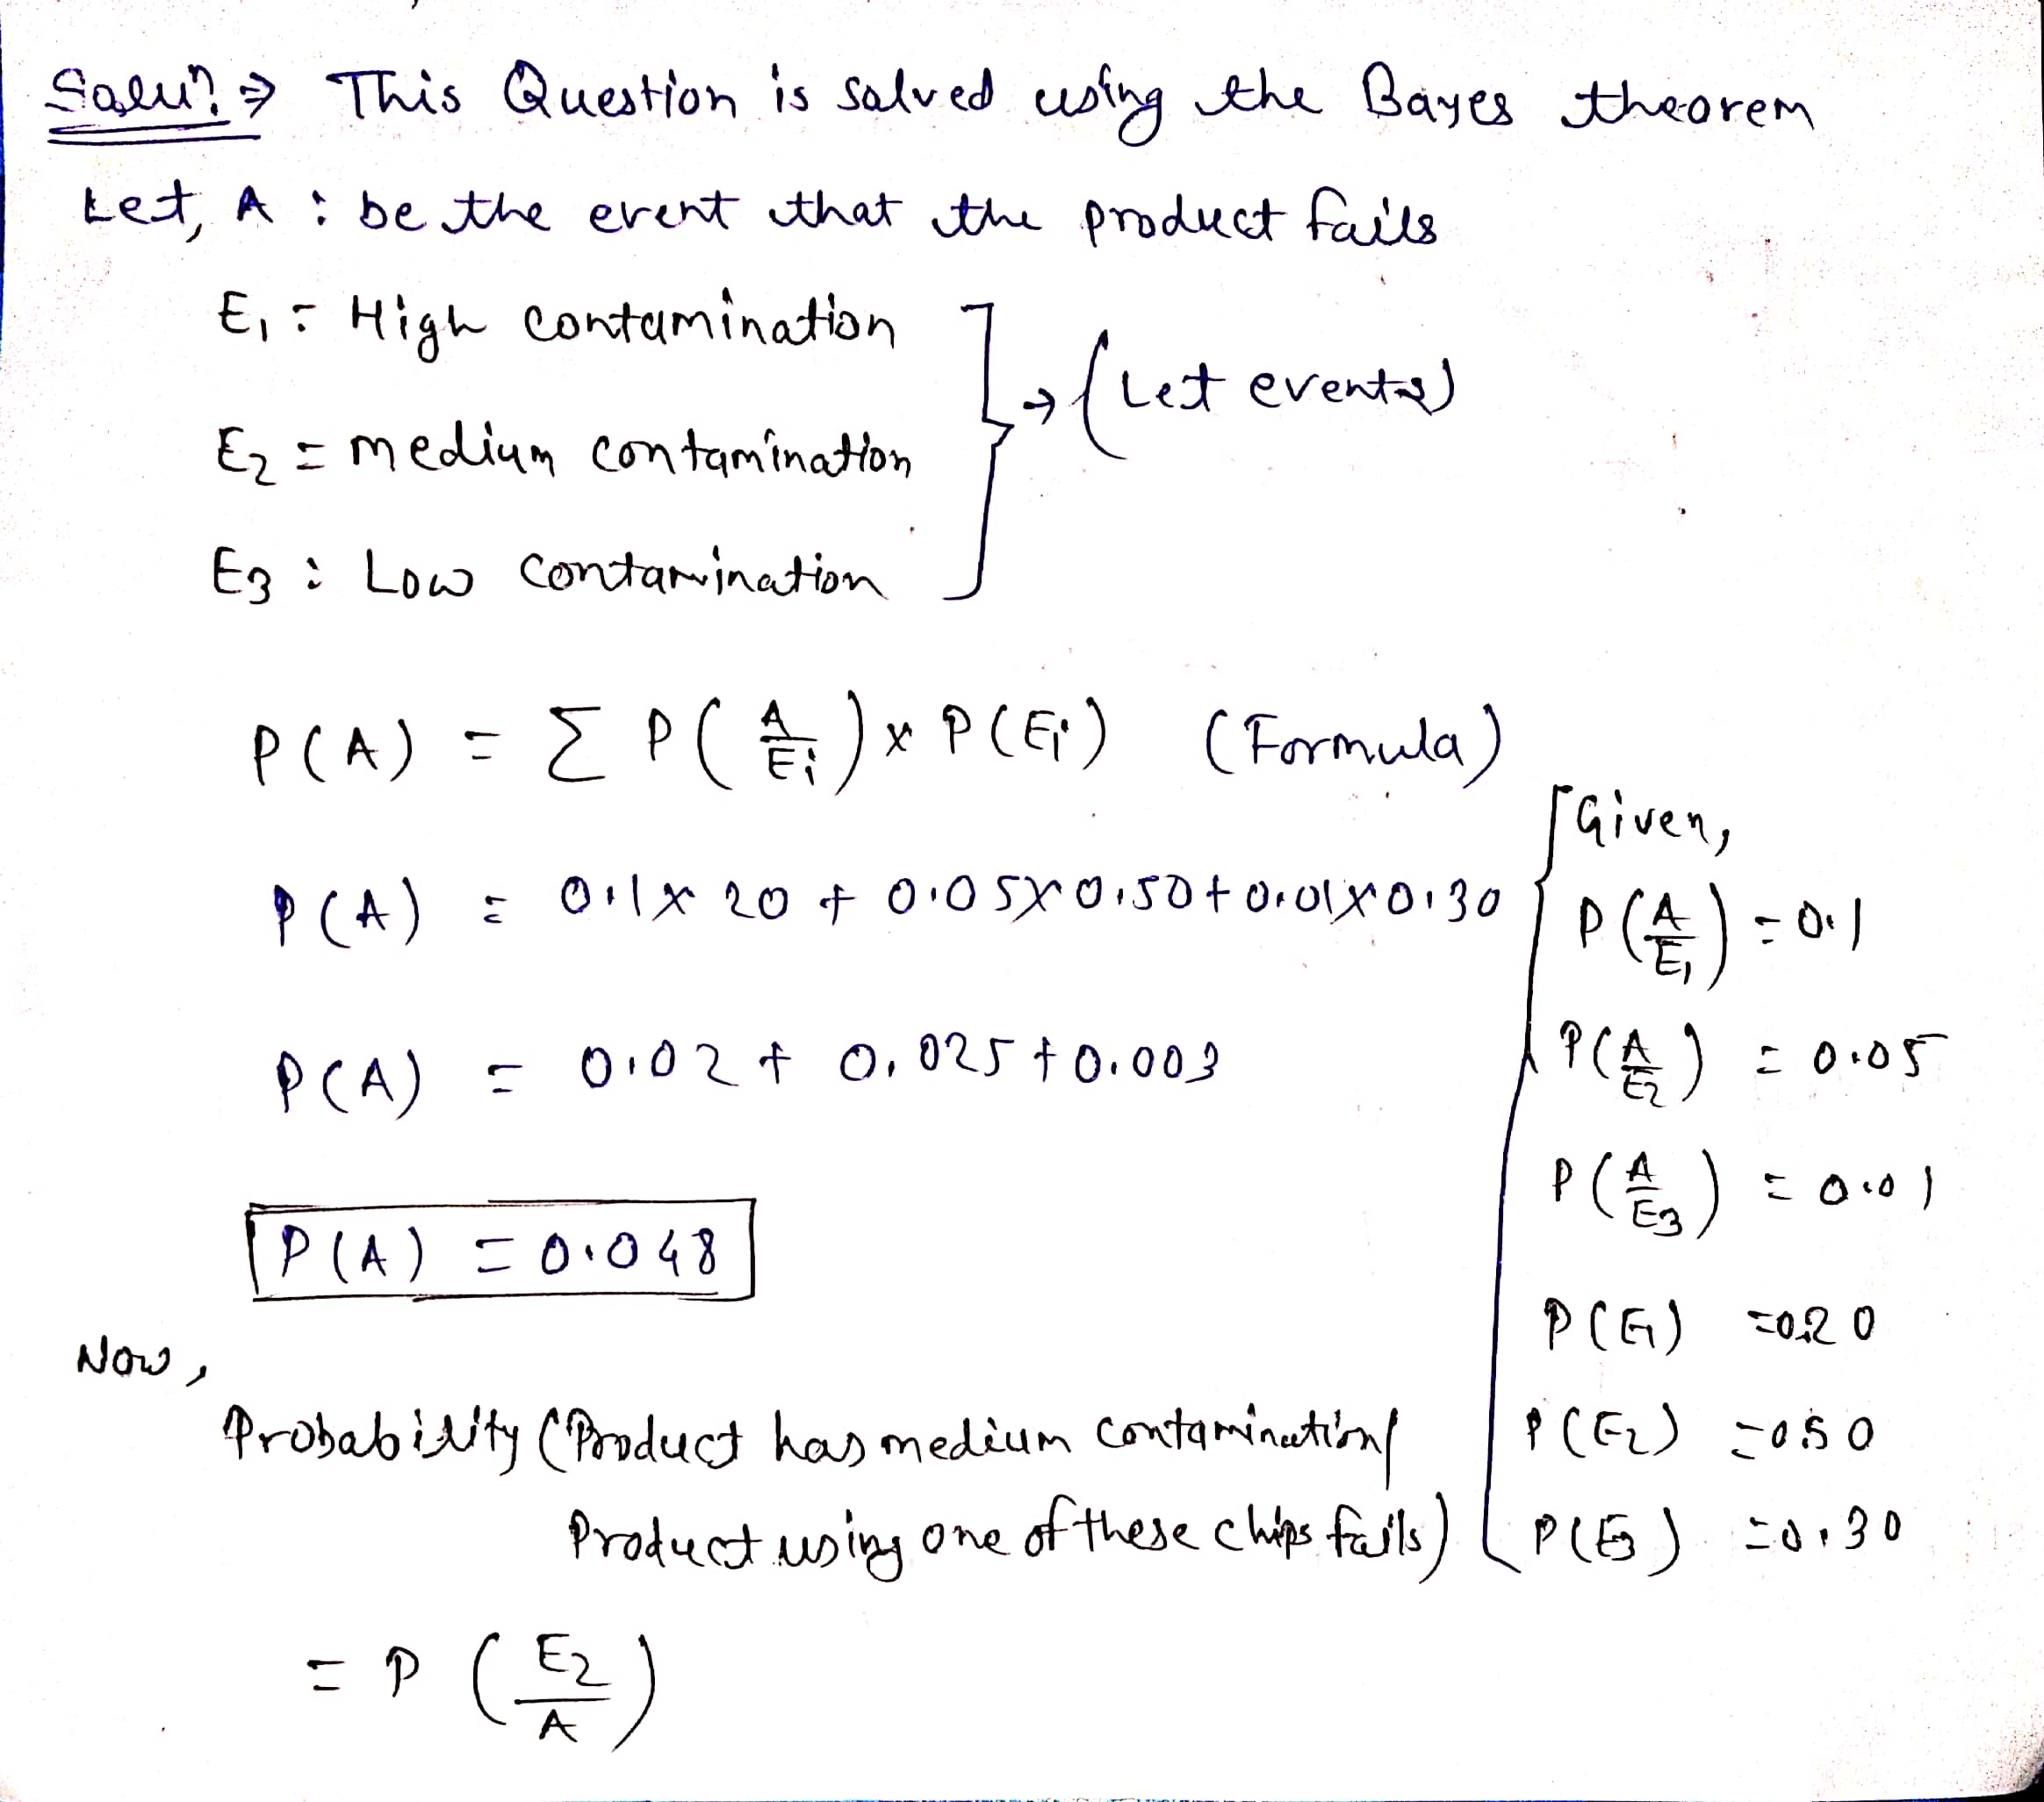 Solun. ⇒ This Question is solved using the Bayes theorem
Let, A : be the event that the product fails
E₁ = High contamination
→ (Let events)
E₂ = medium contamination
E₃ : Low contamination
P(A) = Σ P(A/Ei) × P(Ei) (Formula)
P(A) = 0.1 × 20 + 0.05 × 0.50 + 0.01 × 0.30
P(A) = 0.02 + 0.025 + 0.003
P(A) = 0.048
Given,
P(A/E₁) = 0.1
P(A/E₂) = 0.05
P(A/E₃) = 0.01
P(E₁) = 0.20
P(E₂) = 0.50
P(E₃) = 0.30
Now,
Probability (Product has medium contamination/
Product using one of these chips fails)
= P (E₂/A)